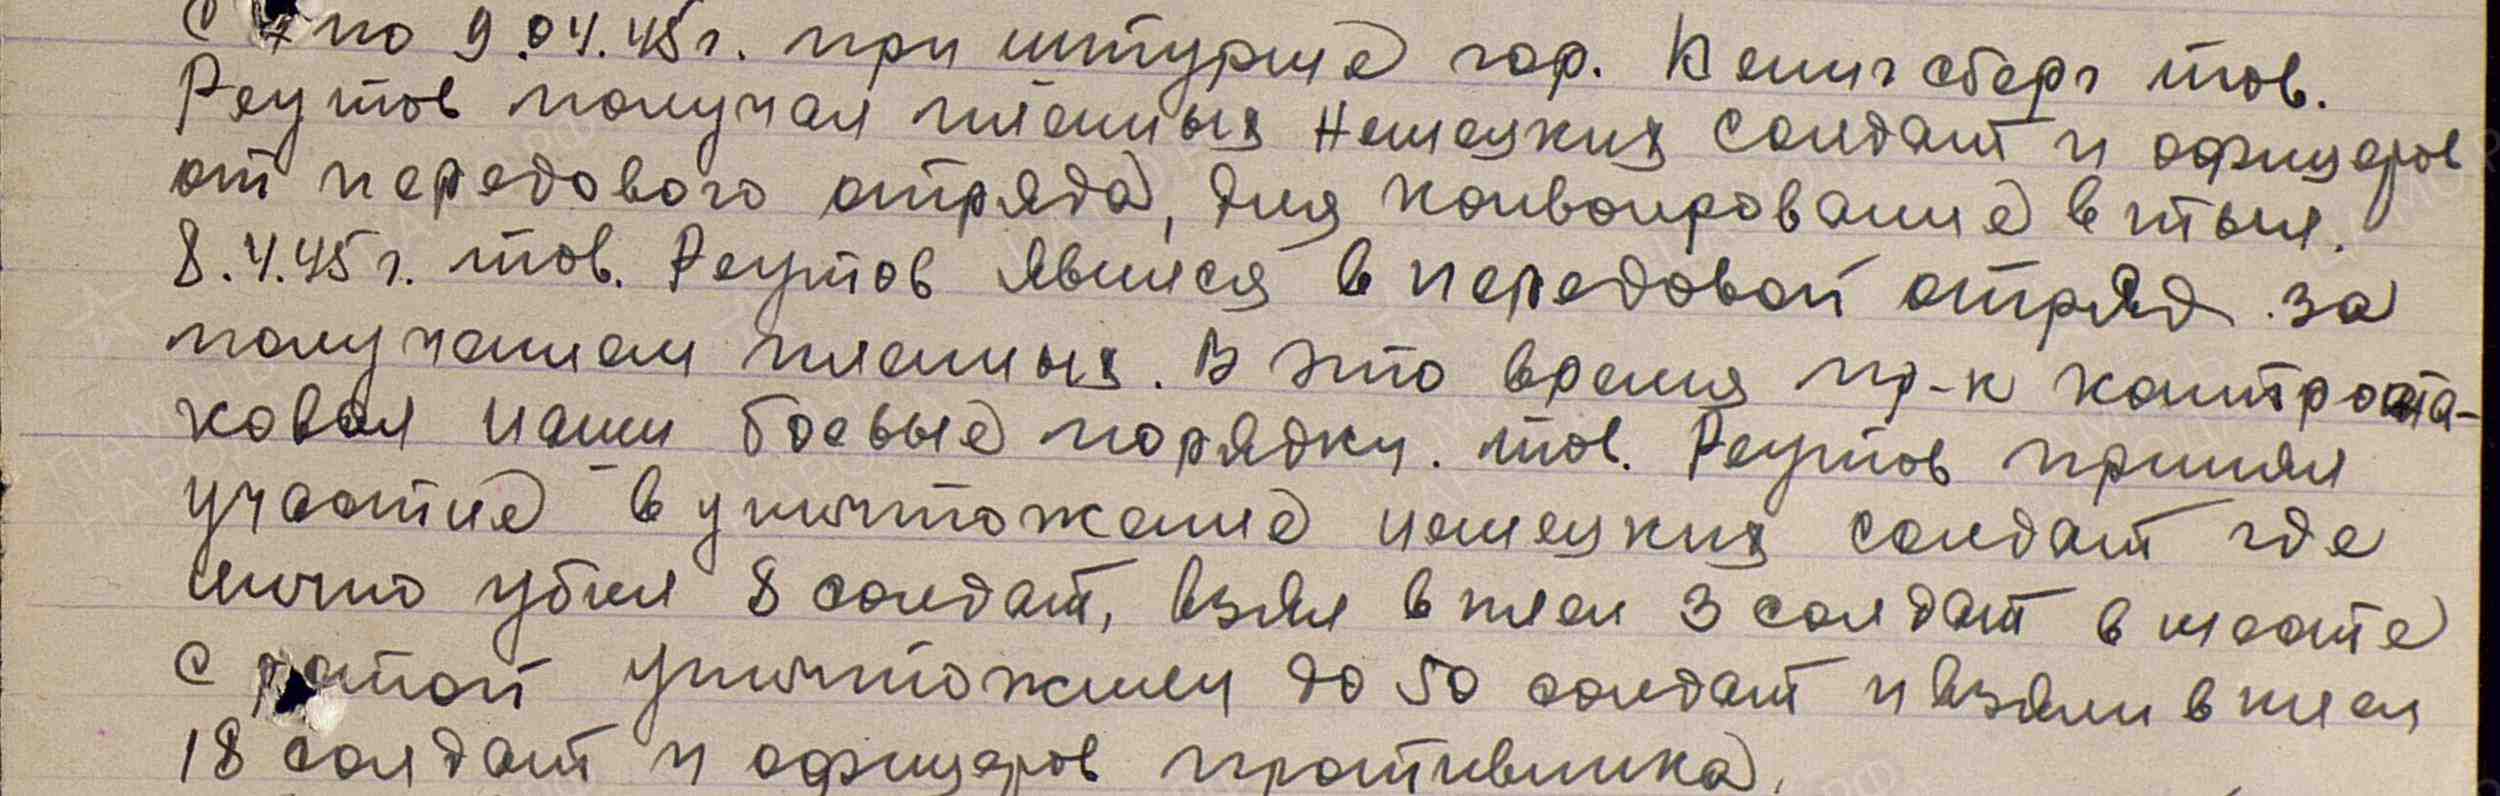 С 7 по 9.04.45г. при штурме гор. Кенигсберг тов.
Реутов получал пленных немецких солдат и офицеров
от передового отряда, для конвоирование в тыл.
8.4.45г. тов. Реутов явился в передовой отряд за
получением пленных. В это время пр-к контрата-
ковал наши боевые порядки. тов. Реутов принял
участие в уничтожение немецких солдат где
лично убил 8 солдат, взял в плен 3 солдат в месте
с ротой уничтожили до 50 солдат и взяли в плен
18 солдат и офицеров противника.